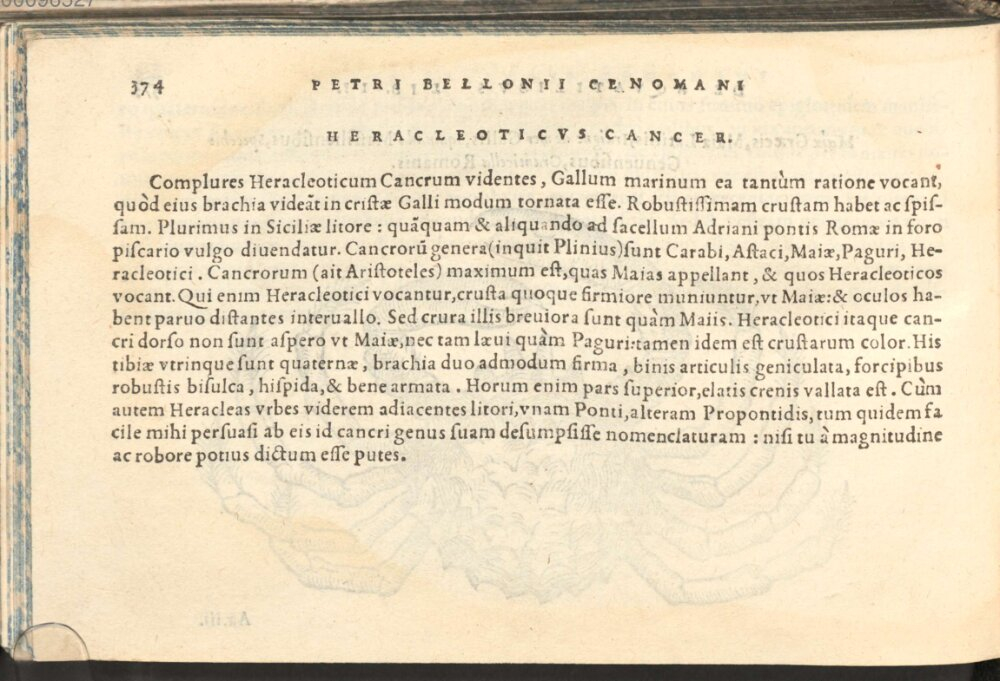 374 PETRI BELLONII CENOMANI
HERACLEOTICVS CANCER.
Complures Heracleoticum Cancrum videntes, Gallum marinum ea tantùm ratione vocant,
quòd eius brachia videāt in cristæ Galli modum tornata esse. Robustissimam crustam habet ac spis-
sam. Plurimus in Siciliæ litore : quāquam & aliquando ad sacellum Adriani pontis Romæ in foro
piscario vulgo diuendatur. Cancrorū genera(inquit Plinius)sunt Carabi, Astaci, Maiæ, Paguri, He-
racleotici. Cancrorum (ait Aristoteles) maximum est,quas Maias appellant, & quos Heracleoticos
vocant. Qui enim Heracleotici vocantur,crusta quoque firmiore muniuntur,vt Maiæ:& oculos ha-
bent paruo distantes interuallo. Sed crura illis breuiora sunt quàm Maiis. Heracleotici itaque can-
cri dorso non sunt aspero vt Maiæ,nec tam læui quàm Paguri:tamen idem est crustarum color. His
tibiæ vtrinque sunt quaternæ, brachia duo admodum firma, binis articulis geniculata, forcipibus
robustis bisulca, hispida,& bene armata. Horum enim pars superior,elatis crenis vallata est. Cùm
autem Heracleas vrbes viderem adiacentes litori,vnam Ponti,alteram Propontidis,tum quidem fa
cile mihi persuasi ab eis id cancri genus suam desumpsisse nomenclaturam : nisi tu à magnitudine
ac robore potius dictum esse putes.